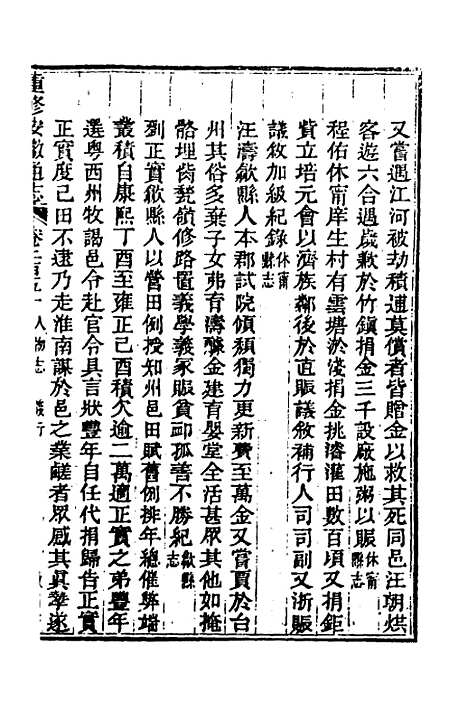 又嘗過江河被劫積逋莫償者皆贈金以救其死同邑汪朝烘
客遊六合過歲歉於竹鎮捐金三千設廠施粥以賑休甯縣志
程佑休甯庠生村有雲塘淤淺捐金挑濬灌田數百頃又捐鉅
貲立培元會以濟族鄰後於直賑議敘補行人司司副又浙賑
議敘加級紀錄休甯縣志
汪濤歙縣人本郡試院傾頹獨力更新費至萬金又嘗賈於台
州其俗多棄子女弗育濤醵金建育嬰堂全活甚眾其他如掩
骼埋胔甃嶺修路置義學義冢賑貧卹孤善不勝紀歙縣志
劉正實歙縣人以營田例授知州邑田賦舊例排年總催弊端
叢積自康熙丁酉至雍正己酉積欠逾二萬適正實之弟豐年
選粵西州牧謁邑令赴官令具言狀豐年自任代捐歸告正實
正實度己田不遠乃走淮南謀於邑之業鹺者眾感其真摯遂
重修安徽通志 卷二百五十 人物志 義行